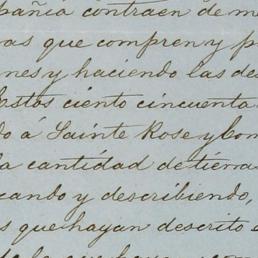 pañia contraen de m
vas que compren y p
nes y haciendo las des
Costos ciento cincuenta
do á Sainte Rose y Com
la cantidad de tierra
cando y describiendo,
s que hayan descrito